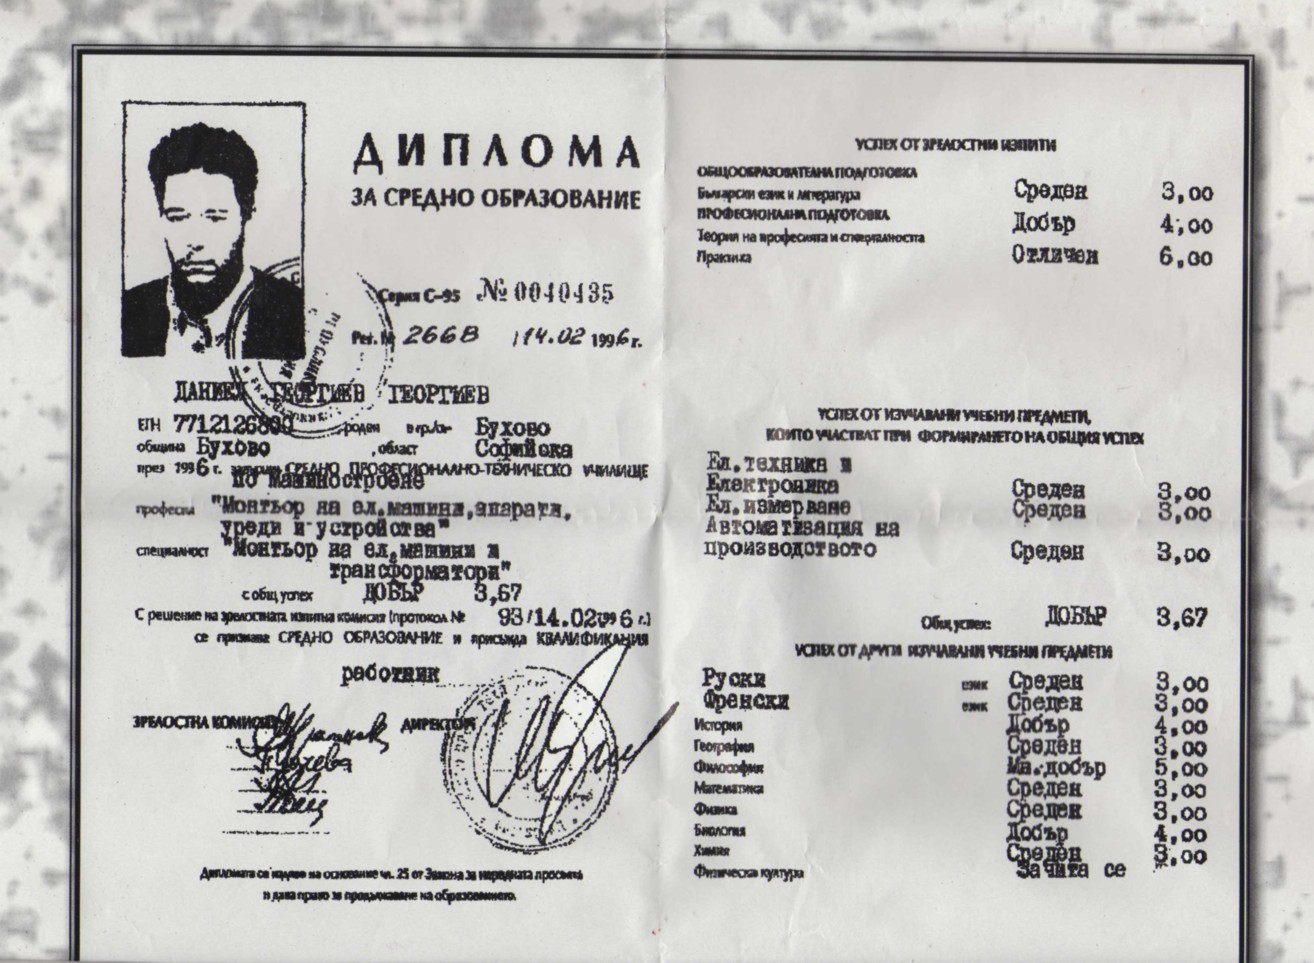 ДИПЛОМА
ЗА СРЕДНО ОБРАЗОВАНИЕ
Серия С-95 № 0040435
Рег. № 2668 /14.02 1996 г.
ДАНИЕЛ ГЕОРГИЕВ ГЕОРГИЕВ
ЕГН 7712126800 роден в гр./с Бухово
община Бухово , област Софийска
през 1996 г. завърши СРЕДНО ПРОФЕСИОНАЛНО-ТЕХНИЧЕСКО УЧИЛИЩЕ
по машиностроене
професия "Монтьор на ел.машини,апарати,
уреди и устройства"
специалност "Монтьор на ел.машини и
трансформатори"
с общ успех ДОБЪР 3,67
С решение на зрелостната изпитна комисия (протокол № 93/14.02.1996 г.)
се признава СРЕДНО ОБРАЗОВАНИЕ и присъжда КВАЛИФИКАЦИЯ
работник
ЗРЕЛОСТНА КОМИСИЯ ДИРЕКТОР
Дипломата се издава на основание чл. 25 от Закона за народната просвета
и дава право за продължаване на образованието.
УСПЕХ ОТ ЗРЕЛОСТНИ ИЗПИТИ
ОБЩООБРАЗОВАТЕЛНА ПОДГОТОВКА
Български език и литература Среден 3,00
ПРОФЕСИОНАЛНА ПОДГОТОВКА
Теория на професията и специалността Добър 4,00
Практика Отличен 6,00
УСПЕХ ОТ ИЗУЧАВАНИ УЧЕБНИ ПРЕДМЕТИ,
КОИТО УЧАСТВАТ ПРИ ФОРМИРАНЕТО НА ОБЩИЯ УСПЕХ
Ел.техника и
Електроника Среден 3,00
Ел.измерване Среден 3,00
Автоматизация на
производството Среден 3,00
Общ успех: ДОБЪР 3,67
УСПЕХ ОТ ДРУГИ ИЗУЧАВАНИ УЧЕБНИ ПРЕДМЕТИ
Руски език Среден 3,00
Френски език Среден 3,00
История Добър 4,00
География Среден 3,00
Философия Мн.добър 5,00
Математика Среден 3,00
Физика Среден 3,00
Биология Добър 4,00
Химия Среден 3,00
Физическа култура Зачита се